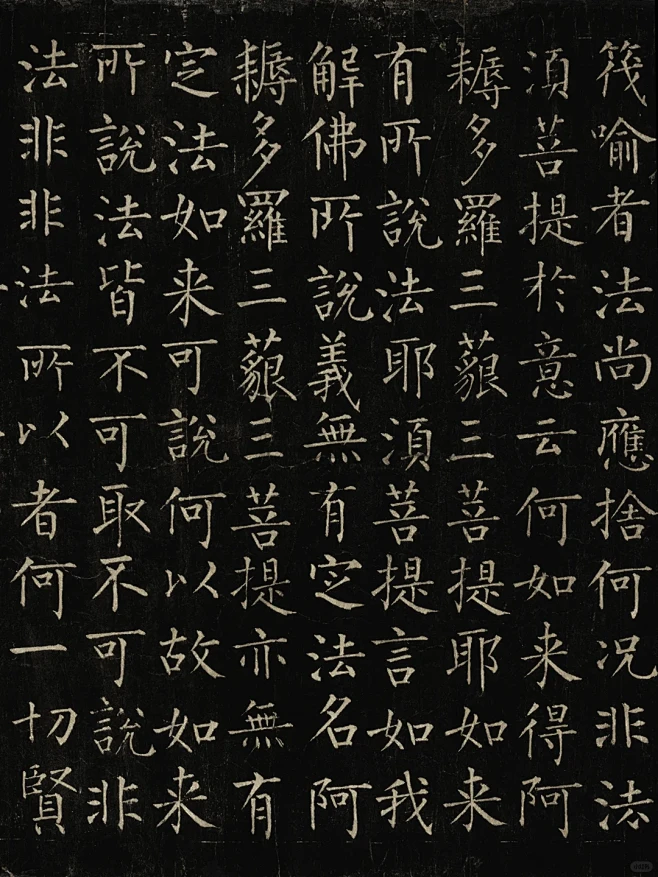 筏喻者法尚應捨何况非法
湏菩提於意云何如来得阿
耨多羅三藐三菩提耶如来
有所說法耶湏菩提言如我
解佛所說義無有定法名阿
耨多羅三藐三菩提亦無有
定法如来可說何以故如来
所說法皆不可取不可說非
法非非法所以者何一切賢